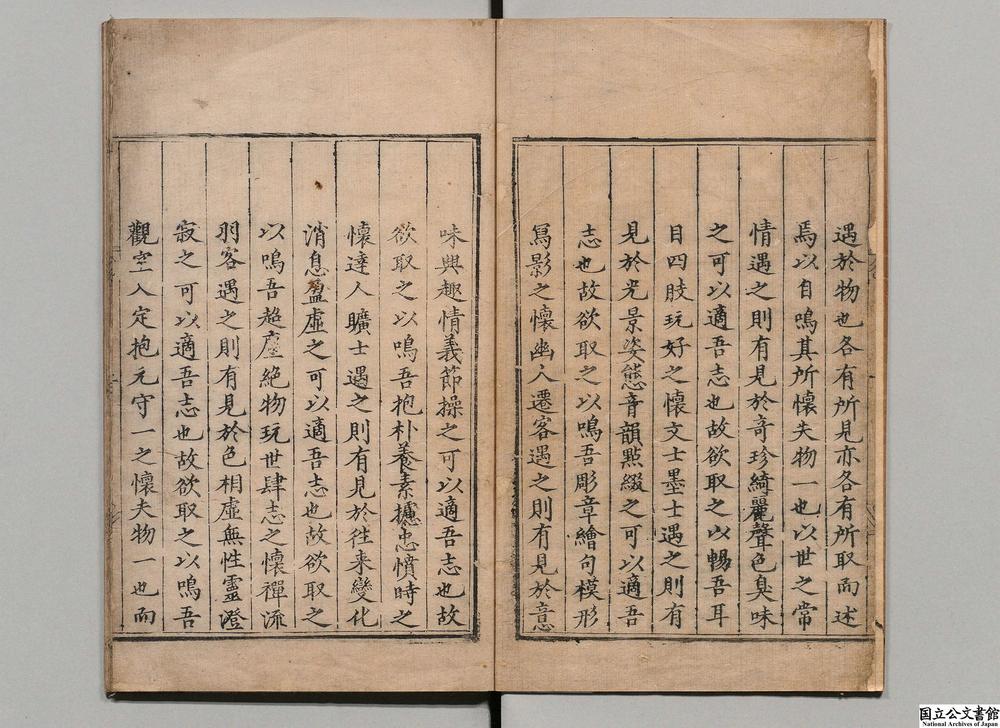 遇於物也各有所見亦各有所取而述
焉以自鳴其所懷夫物一也以世之常
情遇之則有見於奇珍綺麗聲色臭味
之可以適吾志也故欲取之以暢吾耳
目四肢玩好之懷文士墨士遇之則有
見於光景姿態音韻點綴之可以適吾
志也故欲取之以鳴吾彫章繪句模形
寫影之懷幽人遷客遇之則有見於意
味興趣情義節操之可以適吾志也故
欲取之以鳴吾抱朴養素攄忠憤時之
懷達人曠士遇之則有見於徃来變化
消息盈虛之可以適吾志也故欲取之
以鳴吾超塵絶物玩世肆志之懷禪流
羽客遇之則有見於色相虛無性靈澄
寂之可以適吾志也故欲取之以鳴吾
觀空入定抱元守一之懷夫物一也而
国立公文書館
National Archives of Japan